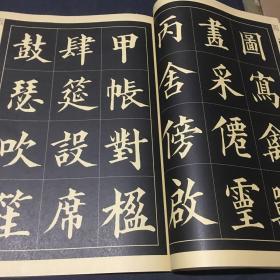 圖寫禽獸
畫采僊靈
丙舍傍啟
甲帳對楹
肆筵設席
鼓瑟吹笙